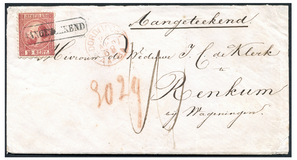 Aangeteekend
AANGETEEKEND
Mevrouw de Weduwe J. C. de Klerk
te
Renkum
bij Wageningen
3029